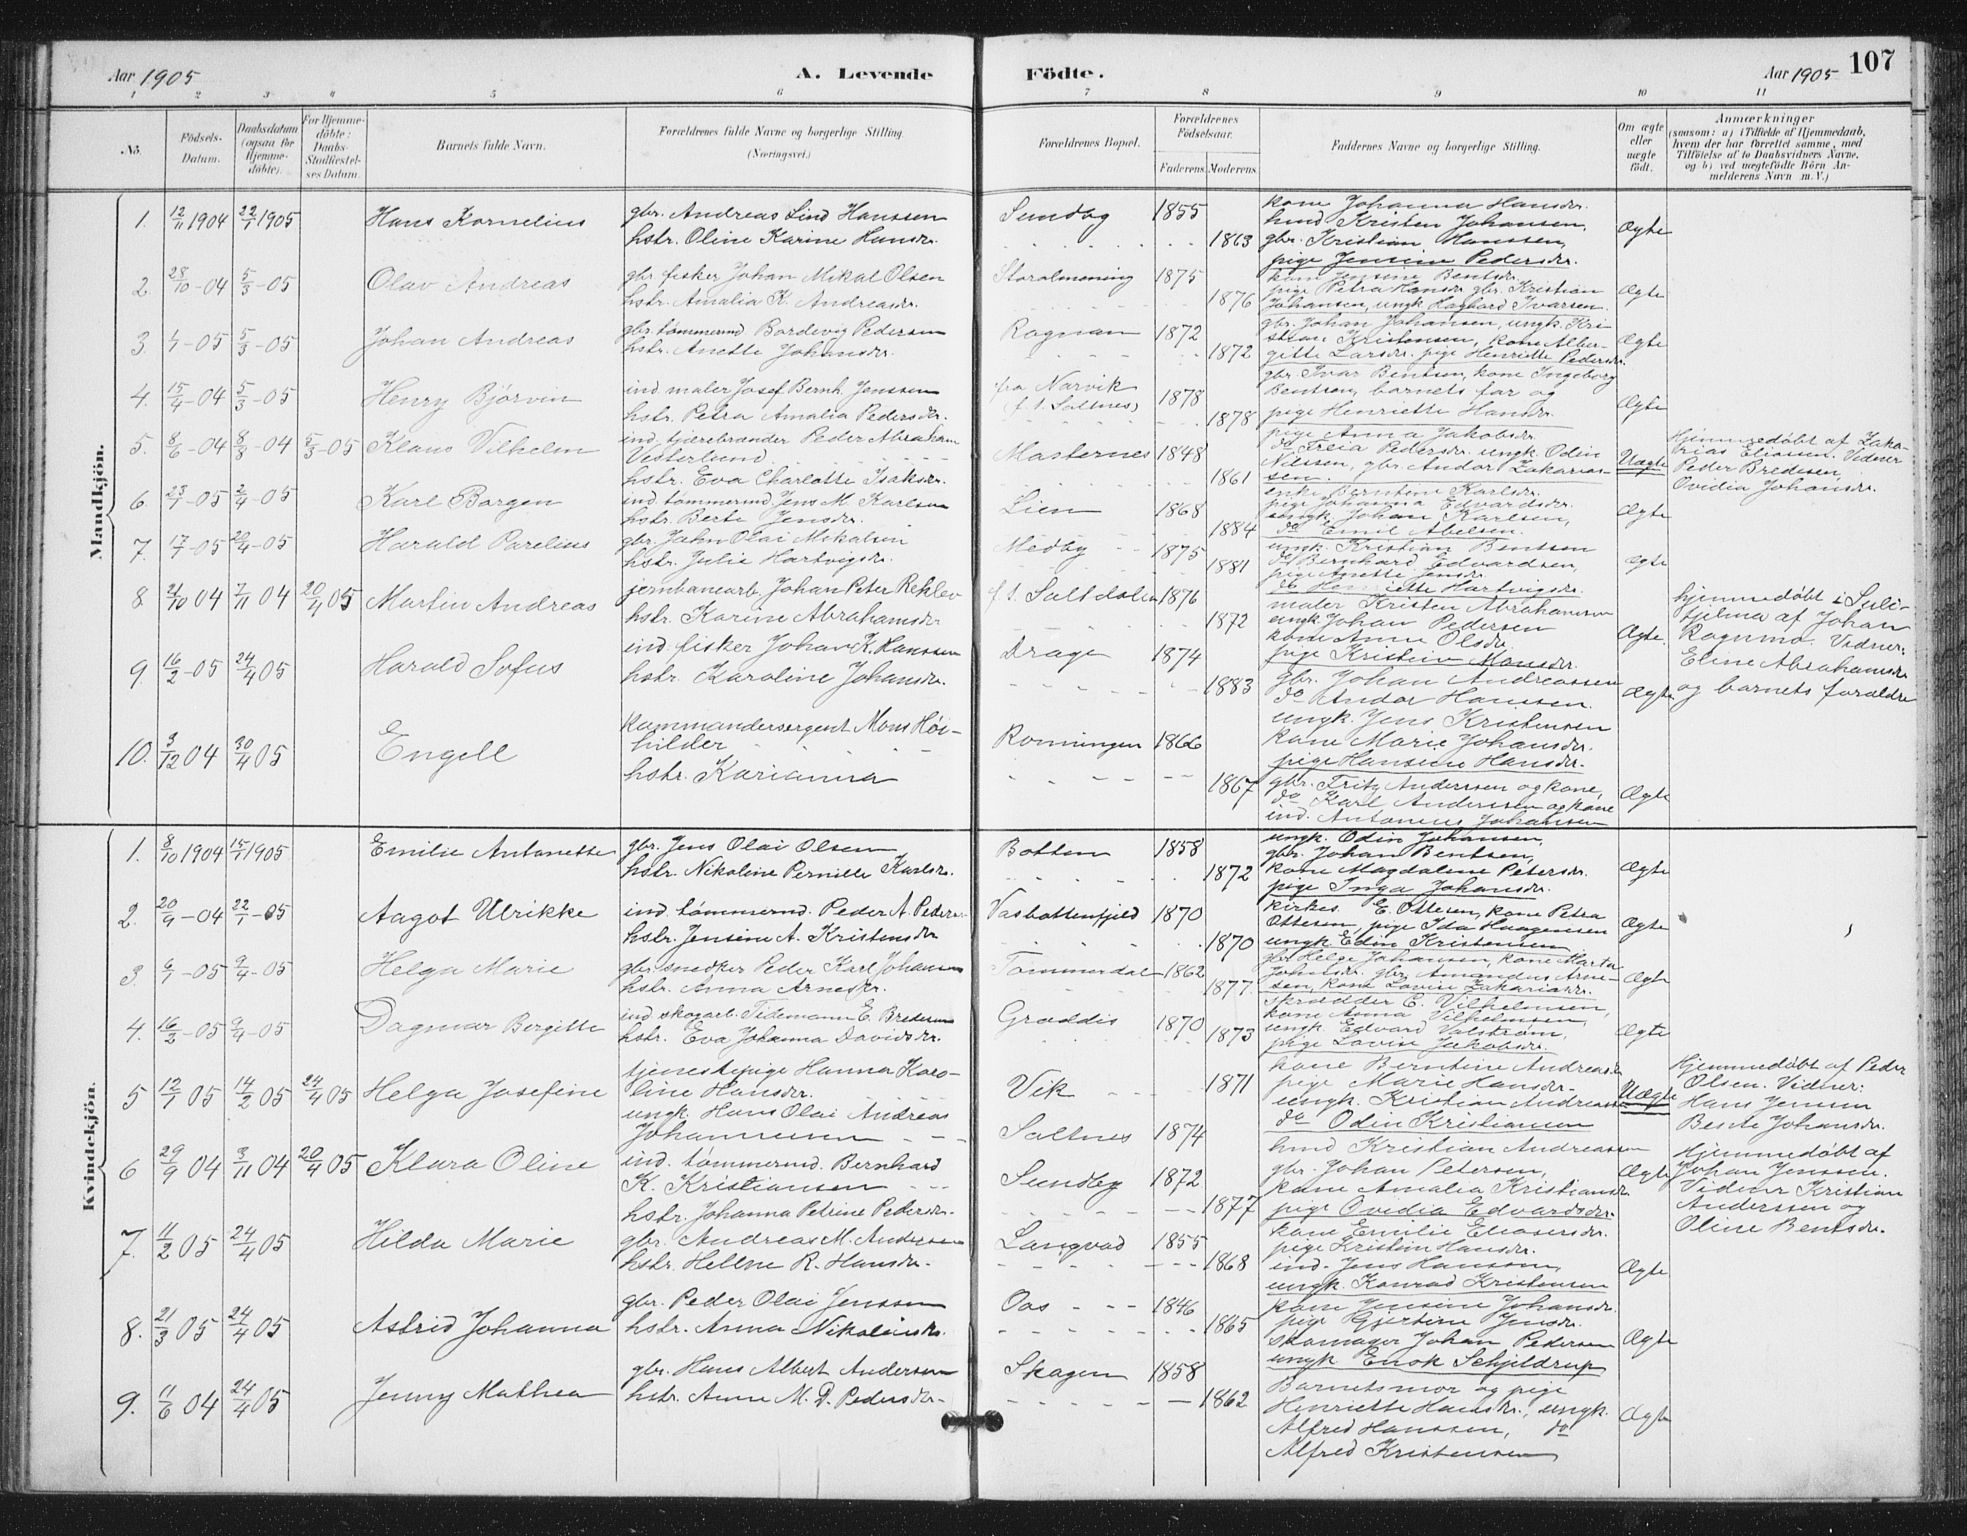 Aar 1905 A. Levende Födte. Aar 1905 107
1 2 3 4 5 6 7 8 9 10 11
No. Födsels-Datum. Daabsdatum (ogsaa for Hjemmedöbte). For Hjemmedöbte: Daabs-Stadfæstelses Datum. Barnets fulde Navn. Forældrenes fulde Navne og borgerlige Stilling. (Næringsvei.) Forældrenes Bopæl. Forældrenes Födselsaar. Faderens Moderens Faddernes Navne og borgerlige Stilling. Om ægte eller uægte födt. Anmærkninger (saasom: a) i Tilfælde af Hjemmedaab, hvem der har forrettet samme, med Tilföielse af to Daabsvidners Navne, og b) ved uægtefödte Börn Anmelderens Navn m. V.)
Mandkjön.
1. 12/11 1904 22/1 1905 Hans Kornelius
gbr. Andreas Lind Hanssen
hstr. Oline Karine Hansdr.
Sundby 1855
1863
kone Johanna Hansdr.
hmd Kristen Johansen,
gbr. Kristian Hanssen,
pige Jensine Pedersdr.
Ægte
2. 28/10 -04 5/3 -05 Olav Andreas
gbr. fisker Johan Mikal Olsen
hstr. Amalia K. Andreasdr.
Storalmening 1875
1876
kone Jensine Bentsdr.
pige Petra Hansdr gbr. Kristian
Johansen, ungk Hagbard Ivarsen.
Ægte
3. 1/1 -05 5/3 -05 Johan Andreas
gbr. tømmermd Bordevig Pedersen
hstr. Anette Johansdr.
Rognan 1872
1872
gbr. Johan Johansen, ungk. Kri-
stian Kristensen, kone Alber-
gitte Larsdr. pige Henriette Pedersdr.
Ægte
4. 15/4 -04 5/3 -05 Henry Bjørvin
ind. maler Josef Bernh. Jenssen
hstr. Petra Amalia Pedersdr.
fra Narvik
(f. t. Saltnes) 1878
1878
gbr. Ivar Bentsen, kone Ingeborg
Bentsen, barnets far og
pige Henriette Hansdr.
Ægte
5. 8/6 -04 8/8 -04 5/3 -05 Klaus Vilhelm
ind. tjærebrænder Peder Abraham
Vesterlund
hstr. Eva Charlotte Isaksdr.
Masternes 1848
1861
pige Anna Jakobsdr.
do Freia Pedersdr. ungk. Odin
Nilssen, gbr. Andor Zakarias-
sen.
Uægte
Hjemmedøbt af Zaka-
rias Eliassen. Vidner
Peder Bredesen,
Ovidia Johansdr.
6 23/1 -05 2/4 -05 Karl Borgen
ind. tømmermd. Jens M. Karlsen
hstr. Berte Jensdr.
Lien 1868
1884
enke Berntine Karlsdr.
pige Johanna Edvardsdr.
ungk. Johan Karlsen,
do Emil Abelsen.
Ægte
7. 17/1 -05 20/4 -05 Harald Parelius
gbr. John Olai Mikalsen
hstr. Julie Hartvigsdr.
Medby 1875
1881
ungk. Kristian Bentsen
do Bernhard Edvardsen,
pige Anette Jensdr.
do Henriette Hartvigsdr.
Ægte
8 21/10 04 7/11 04 20/4 05 Martin Andreas
jernbanearb. Johan Peter Rehlev
hstr. Karine Abrahamsdr.
f. t. Saltdalen 1876
1872
maler Kristen Abrahamsen
ungk Johan Pedersen
kone Anne Olsdr.
pige Kristin Monsdr.
Ægte.
hjemmedøbt i Suli-
tjelma af Johan
Rognmo. Vidner:
Eline Abrahamsdr
og barnets forældre
9. 16/2 -05 24/4 05 Harald Sofus
ind. fisker Johan K. Hanssen
hstr. Karoline Johansdr.
Drage 1874
1883
gbr. Johan Andreassen
do Andor Hanssen.
ungk. Jens Kristensen
kone Marie Johansdr.
pige Hansine Hansdr.
Ægte.
10. 3/12 04 30/4 05 Engell
kommandersergent Mons Høi-
hilder
hstr. Karianna
Ronningen 1866
1867
gbr. Fritz Anderssen og kone,
do Karl Anderssen og kone
ind. Antonius Johansen
Ægte
Kvindekjön.
1. 8/10 1904 15/1 1905 Emilie Antonette
gbr. Jens Olai Olsen
hstr. Nikoline Pernille Karlsdr.
Botten 1858
1872
ungk. Odin Johansen,
gbr. Johan Bentsen,
kone Magdalene Petersdr.
pige Inga Johansdr.
Ægte
2. 20/9 -04 22/1 -05 Aagot Ulrikke
ind. tømmermd. Peder A. Peders
hstr. Jensine A. Kristensdr
Vasbottenfjeld 1870
1870
kirkes. E. Ottesen, kone Petra
Ottesen, pige Ida Haagensen
ungk. Edin Kristensen
Ægte
3. 6/1 -05 9/4 -05 Helga Marie
gbr. snedker Peder Karl Johansen
hstr. Anna Arnesdr.
Tømmerdal 1862
1877.
gbr Helge Johansen, kone Marta
Johnsdr. gbr. Amandus Arne-
sen, kone Lovise Zakariasdr.
Ægte
4. 16/2 -05 9/4 -05 Dagmar Bergitte
ind skogarb. Tidemann E. Bredesen
hstr. Eva Johanna Davidsdr.
Graddis 1870
1873
skrædder E. Vilhelmsen,
kone Anna Vilhelmsen,
ungk Edvard Valstrøm,
pige Lovise Jakobsdr.
Ægte
5 12/1 05 14/2 05 24/4 05 Helga Josefine
tjenestepige Hanna Karo-
line Hansdr.
ungk. Hans Olai Andreas
Johannessen
Vik 1871
Saltnes 1874
kone Berntine Andreasdr
pige Marie Hansdr.
ungk. Kristian Andreassen
do Odin Kristiansen
Uægte
Hjemmedøbt af Peder
Olsen. Vidner:
Hans Jensen
Bente Johansdr.
6 29/9 04 3/11 04 20/4 05 Klara Oline
ind. tømmermd. Bernhard
K. Kristiansen
hstr. Johanna Petrine Pedersdr.
Sundby 1872
1877
hmd Kristian Andreassen
gbr. Johan Petersen,
kone Amalia Kristiansdr.
pige Ovidia Edvardsdr.
Ægte
Hjemmedøbt af
Johan Jenssen.
Vidner Kristian
Anderssen og
Oline Bentsdr.
7. 11/2 05 24/4 05 Hilda Marie
gbr. Andreas M. Andersen
hstr. Helene R. Hansdr.
Langvad 1855
1868
kone Emilie Eliasersdr.
pige Kristin Hansdr.
ind. Jens Hanssen,
ungk. Konrad Kristensen
Ægte
8. 21/3 05 24/4 05 Astrid Johanna
gbr. Peder Olai Jenssen
hstr. Anna Nikolaisdr.
Oas 1846
1865
kone Jensine Johansdr.
pige Gjertine Jensdr.
skomager Johan Pedersen
ungk Enok Schjeldrup
Ægte
9. 11/6 04 24/4 05 Jenny Mathea
gbr. Hans Albert Andersen
hstr. Anne M. D. Pedersdr.
Skagen 1858
1862
Barnets mor og pige
Henriette Hansdr., ungk.
Alfred Hanssen, do
Alfred Kristensen
Ægte